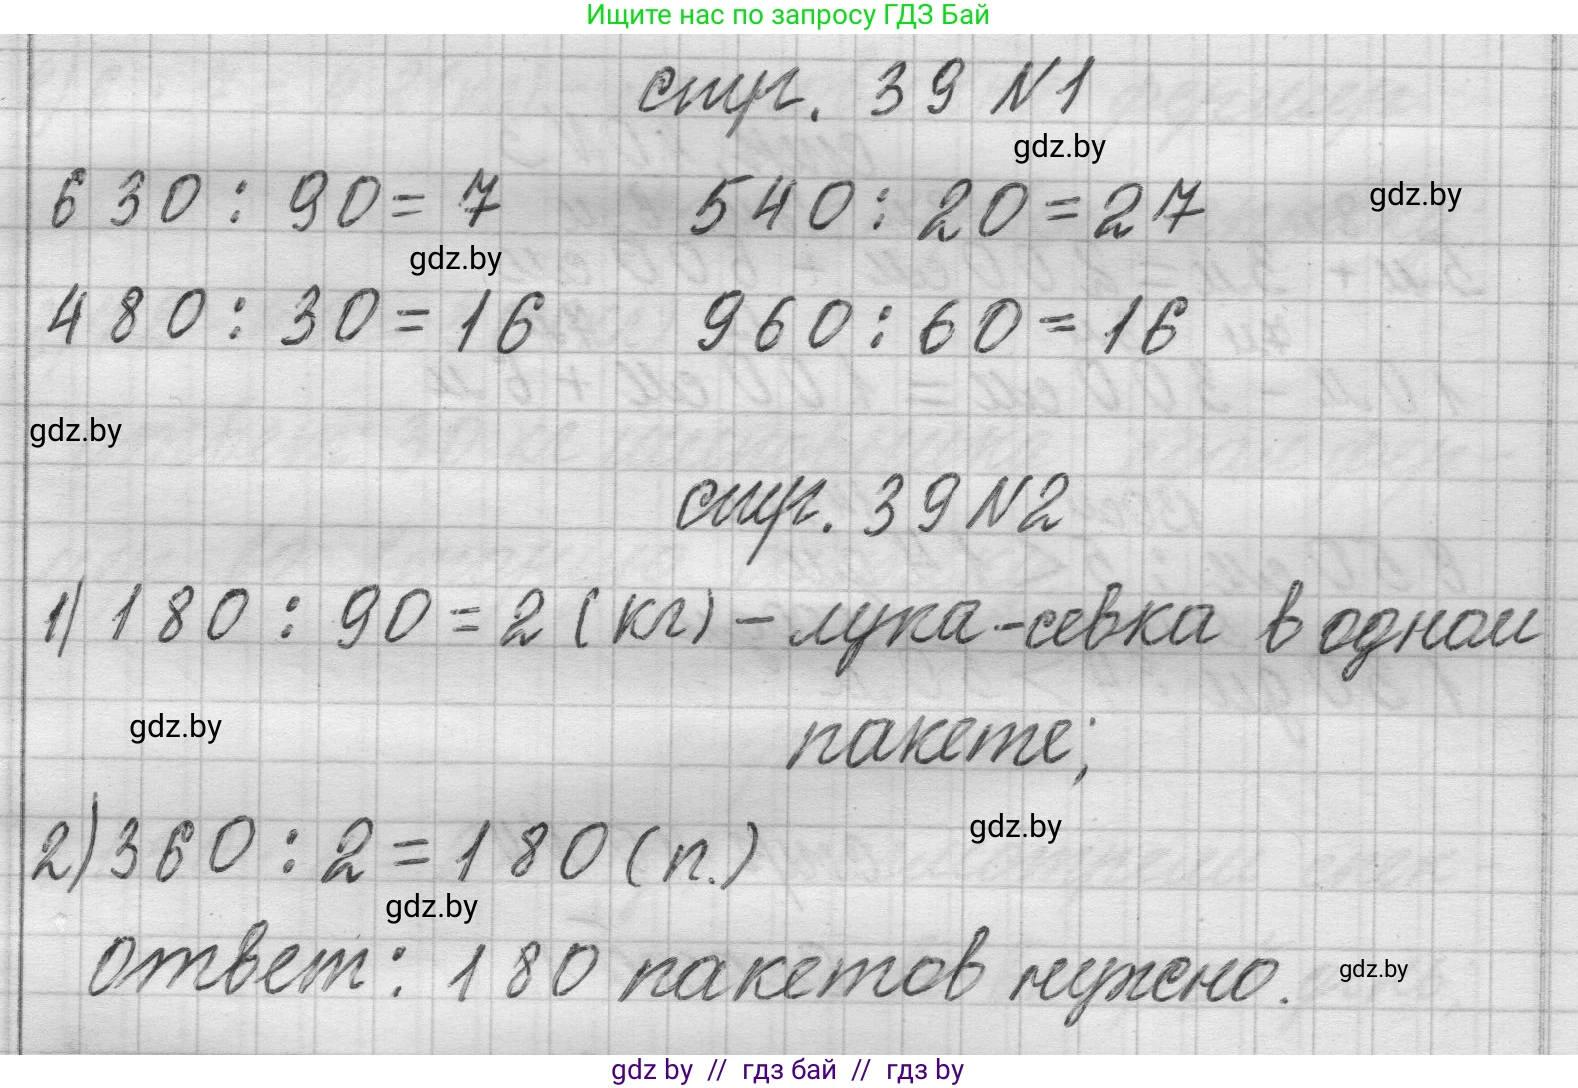 Ищите нас по запросу ГДЗ Бай
стр. 39 N1
gdz.by
630 : 90 = 7 540 : 20 = 27
gdz.by
gdz.by
480 : 30 = 16 960 : 60 = 16
gdz.by
стр. 39 N2
1) 180 : 90 = 2 (кг) – лука-севка в одном
пакете;
gdz.by
gdz.by
2) 360 : 2 = 180 (п.)
gdz.by
ответ: 180 пакетов нужно.
gdz.by
gdz by // гдз бай // гдз by